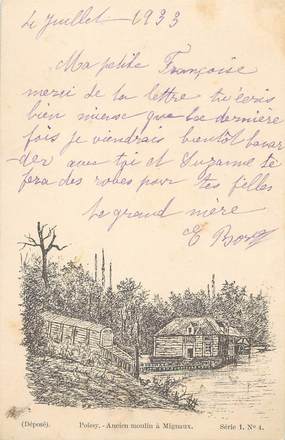 4 Juillet 1933
Ma petite Françoise
merci de ta lettre tu écris
bien mieux que la dernière
fois je viendrais bientôt bavar
-der avec toi et Suzanne te
fera des robes pour tes filles
Ta grand mère
E
(Déposé). Poissy. - Ancien moulin à Mignaux. Série 1. No 4.